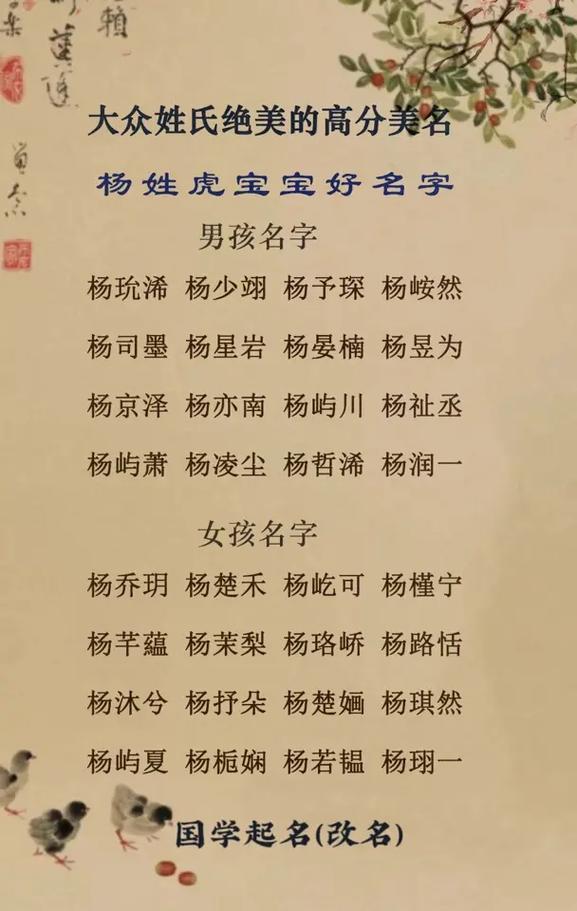 大众姓氏绝美的高分美名
杨姓虎宝宝好名字
男孩名字
杨玧浠 杨少翊 杨予琛 杨峖然
杨司墨 杨星岩 杨晏楠 杨昱为
杨京泽 杨亦南 杨屿川 杨祉丞
杨屿萧 杨凌尘 杨哲浠 杨润一
女孩名字
杨乔玥 杨楚禾 杨屹可 杨槿宁
杨芊蕴 杨茉梨 杨珞峤 杨路恬
杨沐兮 杨抒朵 杨楚婳 杨琪然
杨屿夏 杨栀娴 杨若韫 杨珝一
国学起名(改名)